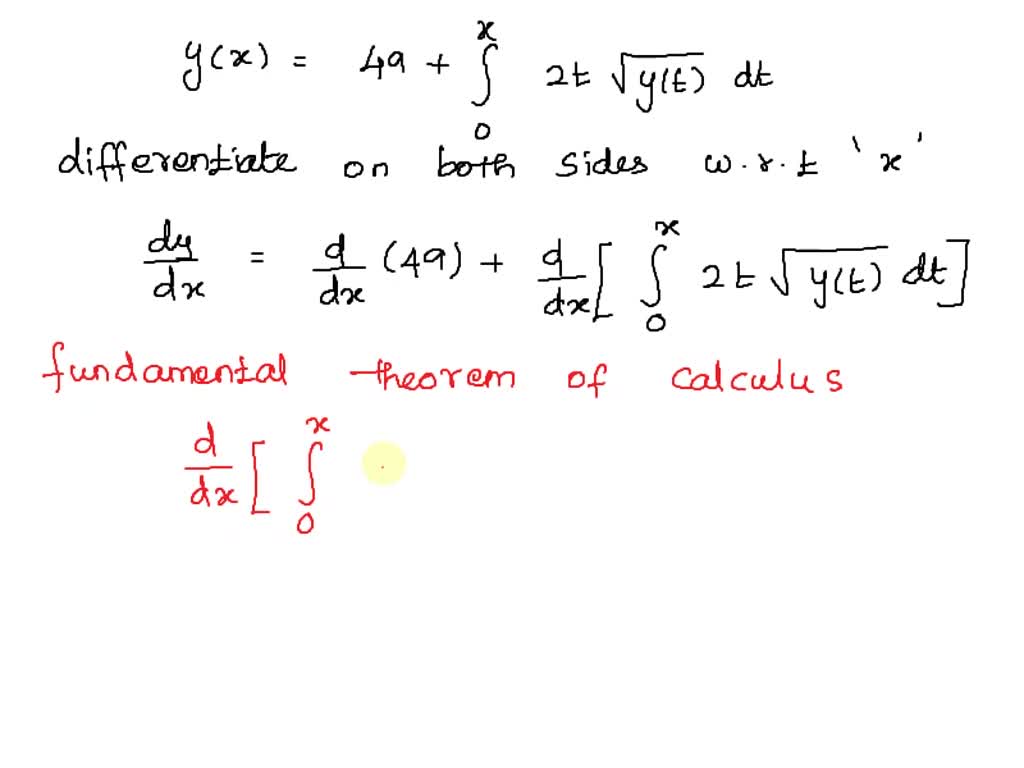 y(x) = 49 + ∫₀ˣ 2t √y(t) dt
differentiate on both sides w.r.t 'x'
dy/dx = d/dx (49) + d/dx [ ∫₀ˣ 2t √y(t) dt ]
fundamental theorem of calculus
d/dx [ ∫₀ˣ